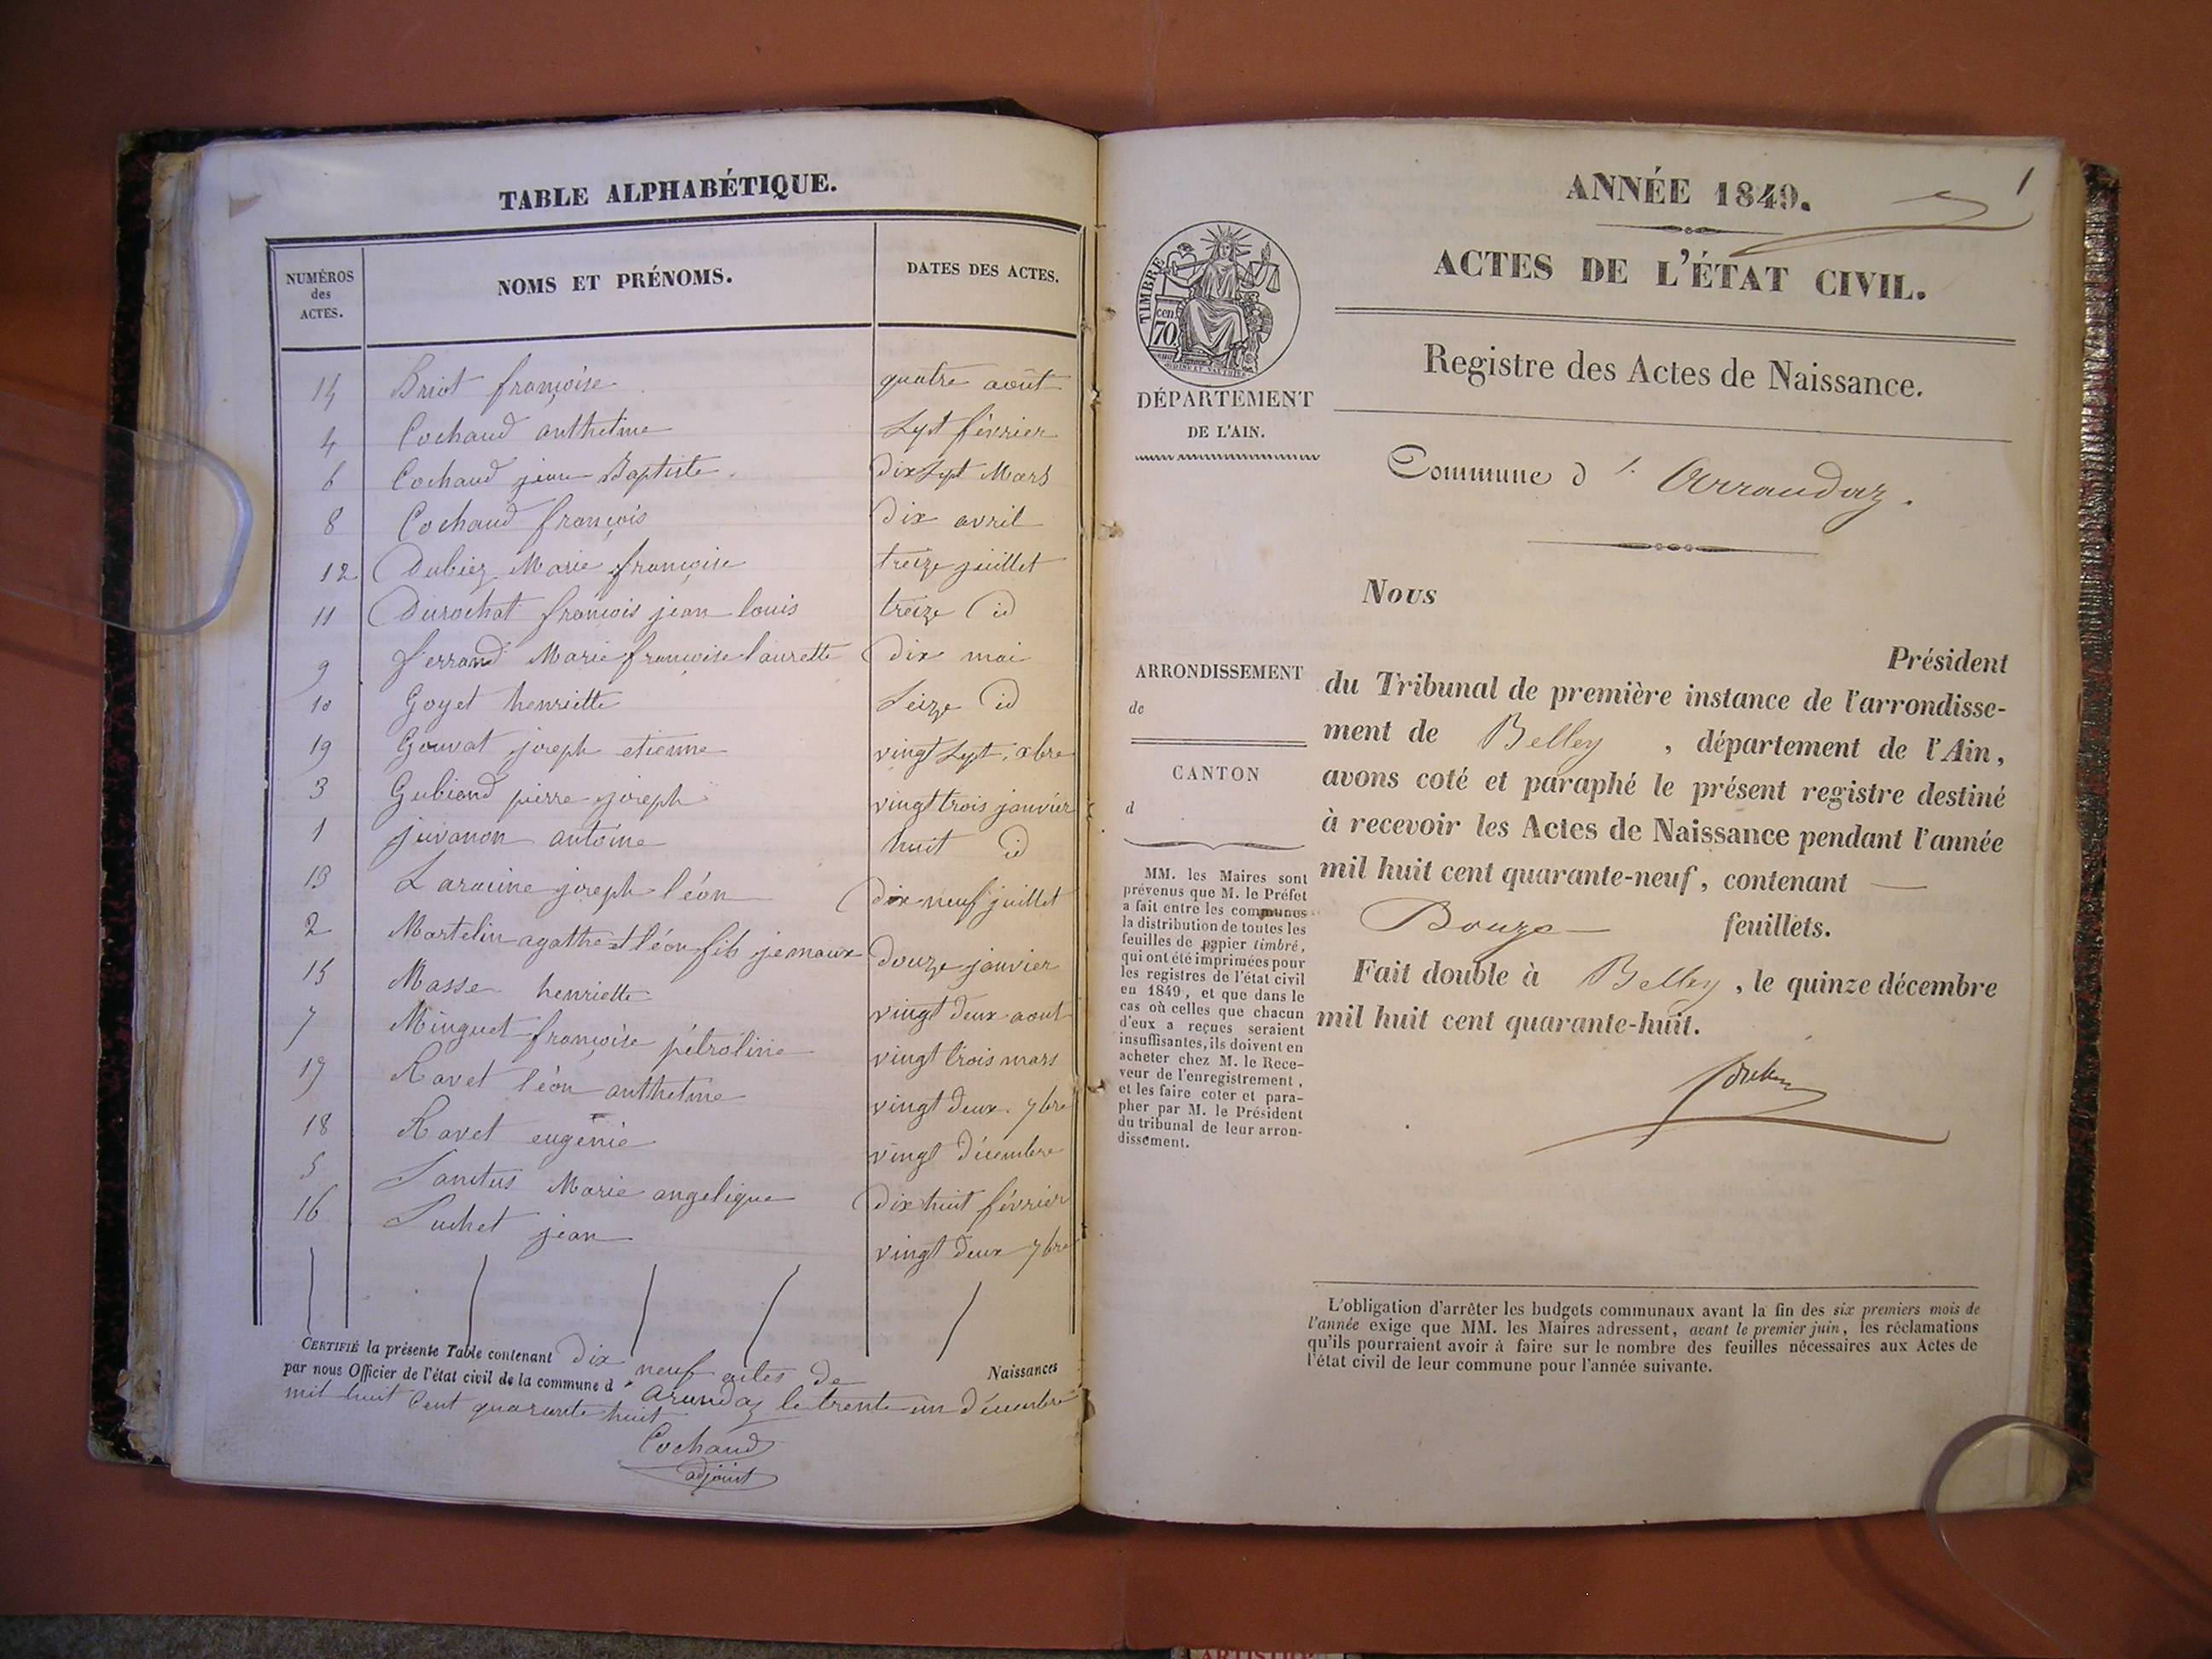 TABLE ALPHABÉTIQUE.
NUMÉROS
des
ACTES.
NOMS ET PRÉNOMS.
DATES DES ACTES.
14 Briot françoise quatre août
4 Cochaud anthelme Sept février
6 Cochaud jean Baptiste dix Sept Mars
8 Cochaud françois dix avril
12 Dubiez Marie françoise treize juillet
11 Durochat francois jean louis treize id
9 ferrand Marie francoise laurette dix mai
10 Goyet henriette Seize id
19 Gouvat joseph etienne vingt Sept. xbre
3 Gubiand pierre joseph vingt trois janvier
1 juvanon antoine huit id
13 Laracine joseph léon dix-neuf juillet
2 Martelin agathe et léon fils jemaux douze janvier
15 Masse henriette vingt deux aout
7 Minguet françoise pétroline vingt trois mars
17 Ravet léon anthelme vingt deux. 7bre
18 Ravet eugénie vingt décembre
5 Sanctus Marie angelique dix huit février
16 Suchet jean vingt deux 7bre
CERTIFIÉ la présente Table contenant dix neuf actes de Naissances
par nous Officier de l'état civil de la commune d' arandaz le trente un décembre
mil huit Cent quarante huit
Cochaud
adjoint
1
ANNÉE 1849.
ACTES DE L'ÉTAT CIVIL.
TIMBRE
cen
70
DÉPARTEMENT
DE L'AIN.
Registre des Actes de Naissance.
Commune d'Arrandaz.
Nous
Président
ARRONDISSEMENT
de
CANTON
d
du Tribunal de première instance de l'arrondisse-
ment de Belley, département de l'Ain,
avons coté et paraphé le présent registre destiné
à recevoir les Actes de Naissance pendant l'année
mil huit cent quarante-neuf, contenant
Douze feuillets.
Fait double à Belley, le quinze décembre
mil huit cent quarante-huit.
MM. les Maires sont
prévenus que M. le Préfet
a fait entre les communes
la distribution de toutes les
feuilles de papier timbré,
qui ont été imprimées pour
les registres de l'état civil
en 1849, et que dans le
cas où celles que chacun
d'eux a reçues seraient
insuffisantes, ils doivent en
acheter chez M. le Rece-
veur de l'enregistrement,
et les faire coter et para-
pher par M. le Président
du tribunal de leur arron-
dissement.
L'obligation d'arrêter les budgets communaux avant la fin des six premiers mois de
l'année exige que MM. les Maires adressent, avant le premier juin, les réclamations
qu'ils pourraient avoir à faire sur le nombre des feuilles nécessaires aux Actes de
l'état civil de leur commune pour l'année suivante.